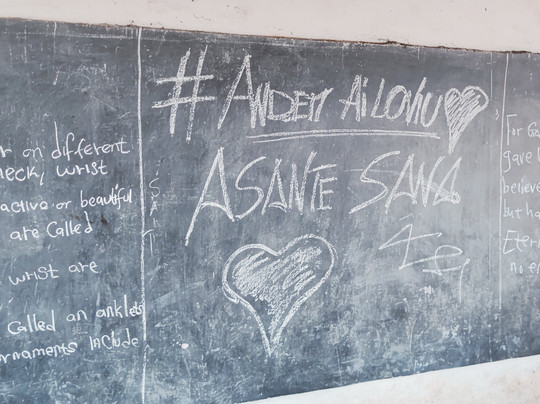 r on different
neck, wrist
active or beautiful
are Called
wrist are
Called an anklets
rnaments Include
# ANDEM AiLoViu
ASANTE SANA
For God
gave
believe
but ha
Etern
no en